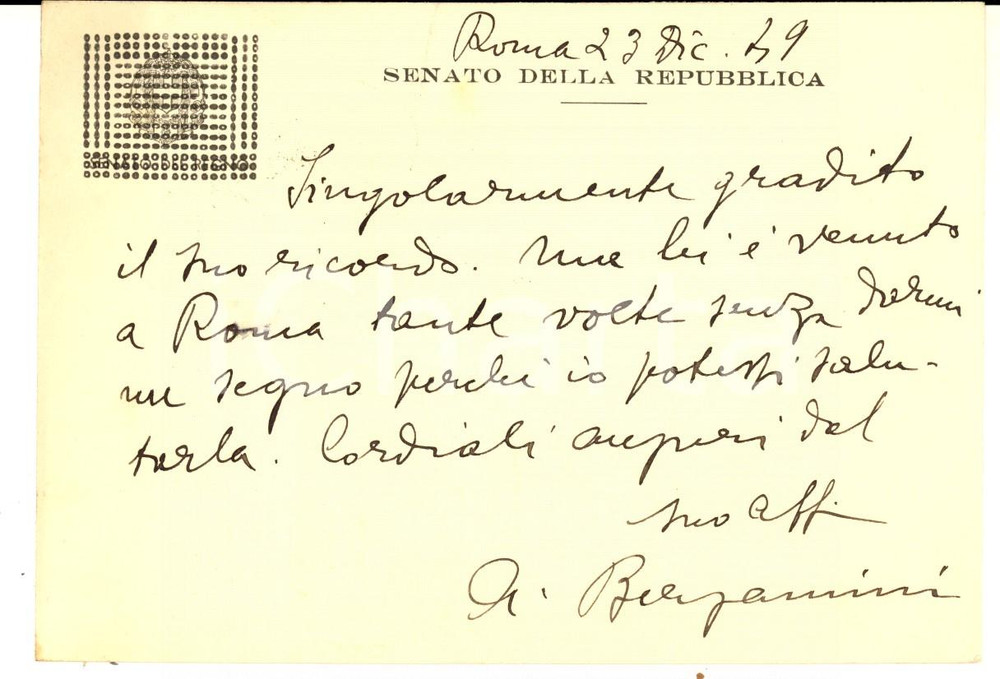 Roma 23 Dic. 49
SENATO DELLA REPUBBLICA
Singolarmente gradito
il suo ricordo. Ma lei è venuto
a Roma tante volte senza darmi
un segno perché io potessi salu-
tarla. Cordiali auguri dal
suo aff.
A. Bergamini